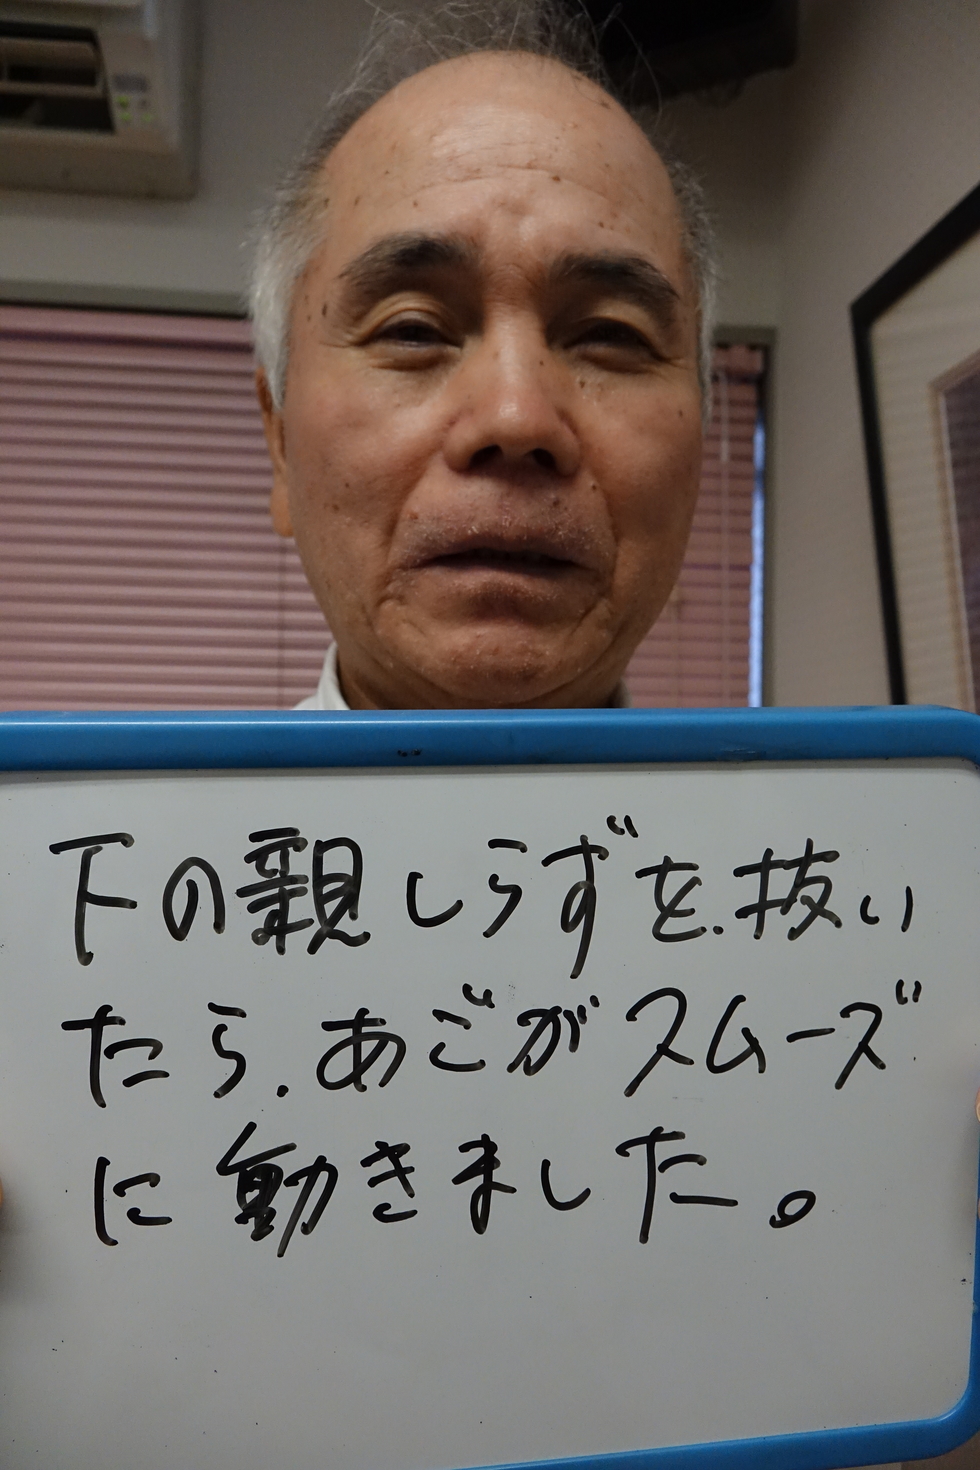 下の親しらずを.抜い
たら.あごがスムーズ
に動きました。